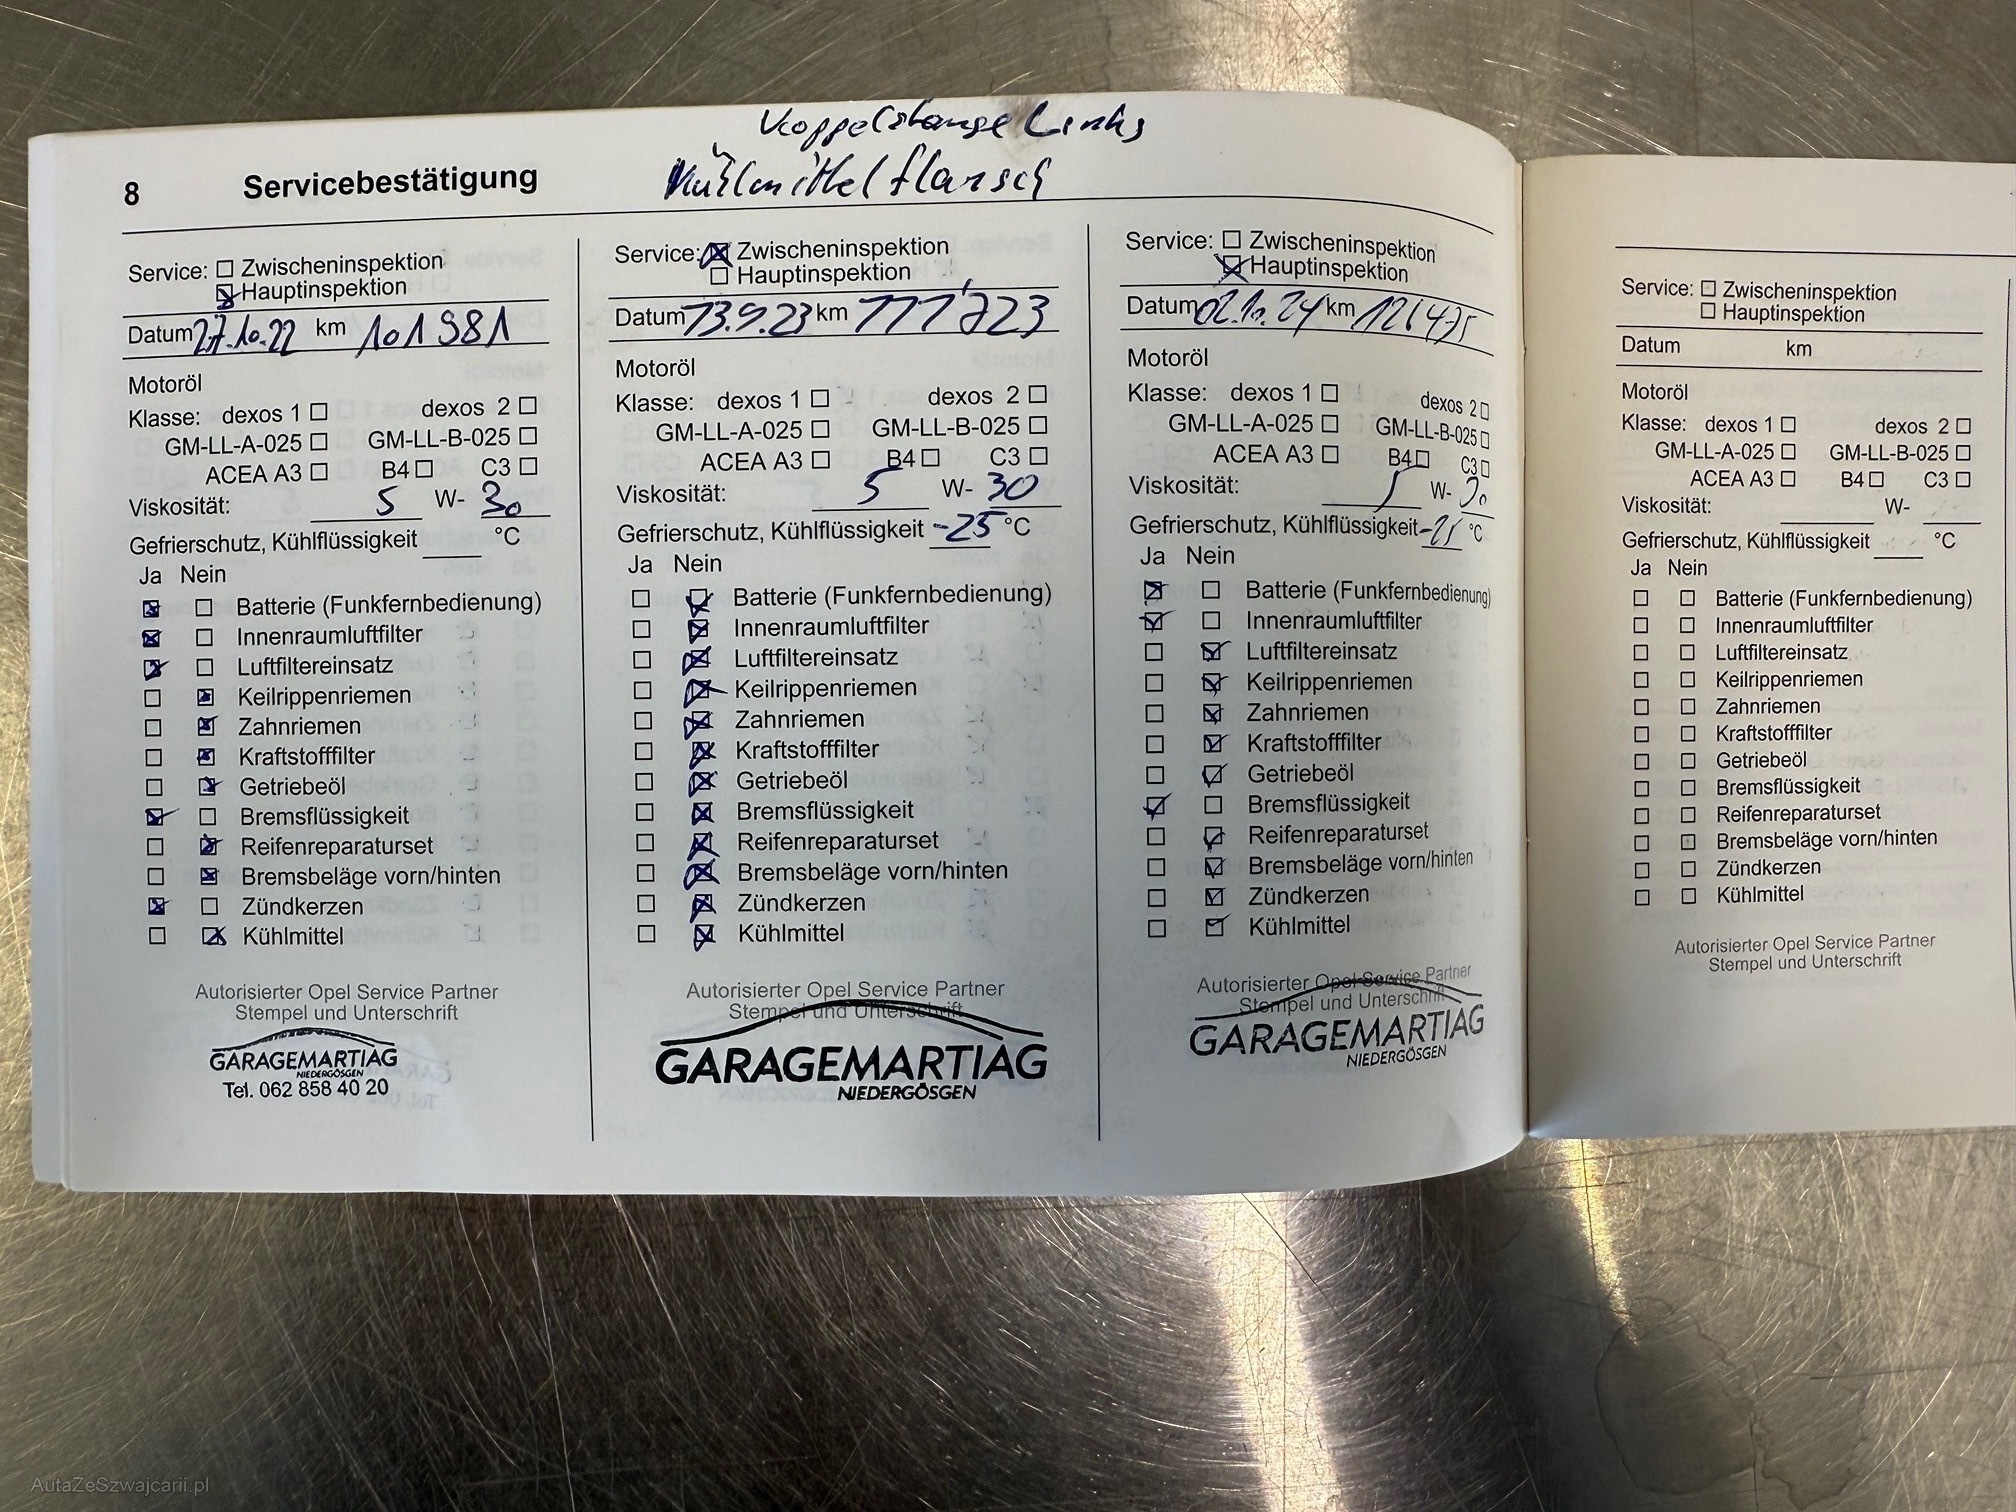 Koppelstange Links
Kühlmittelflansch
8 Servicebestätigung
Service: Zwischeninspektion
Hauptinspektion
Datum 27.10.22 km 101 981
Motoröl
Klasse: dexos 1 dexos 2
GM-LL-A-025 GM-LL-B-025
ACEA A3 B4 C3
Viskosität: 5 W- 30
Gefrierschutz, Kühlflüssigkeit °C
Ja Nein
Batterie (Funkfernbedienung)
Innenraumluftfilter
Luftfiltereinsatz
Keilrippenriemen
Zahnriemen
Kraftstofffilter
Getriebeöl
Bremsflüssigkeit
Reifenreparaturset
Bremsbeläge vorn/hinten
Zündkerzen
Kühlmittel
Autorisierter Opel Service Partner
Stempel und Unterschrift
GARAGEMARTIAG
NIEDERGÖSGEN
Tel. 062 858 40 20
Service: Zwischeninspektion
Hauptinspektion
Datum 13.9.23 km
Motoröl
Klasse: dexos 1 dexos 2
GM-LL-A-025 GM-LL-B-025
ACEA A3 B4 C3
Viskosität: 5 W- 30
Gefrierschutz, Kühlflüssigkeit -25 °C
Ja Nein
Batterie (Funkfernbedienung)
Innenraumluftfilter
Luftfiltereinsatz
Keilrippenriemen
Zahnriemen
Kraftstofffilter
Getriebeöl
Bremsflüssigkeit
Reifenreparaturset
Bremsbeläge vorn/hinten
Zündkerzen
Kühlmittel
Autorisierter Opel Service Partner
Stempel und Unterschrift
GARAGEMARTIAG
NIEDERGÖSGEN
Service: Zwischeninspektion
Hauptinspektion
Datum 02.10.24 km
Motoröl
Klasse: dexos 1 dexos 2
GM-LL-A-025 GM-LL-B-025
ACEA A3 B4 C3
Viskosität: 5 W- 30
Gefrierschutz, Kühlflüssigkeit -25 °C
Ja Nein
Batterie (Funkfernbedienung)
Innenraumluftfilter
Luftfiltereinsatz
Keilrippenriemen
Zahnriemen
Kraftstofffilter
Getriebeöl
Bremsflüssigkeit
Reifenreparaturset
Bremsbeläge vorn/hinten
Zündkerzen
Kühlmittel
Autorisierter Opel Service Partner
Stempel und Unterschrift
GARAGEMARTIAG
NIEDERGÖSGEN
Service: Zwischeninspektion
Hauptinspektion
Datum km
Motoröl
Klasse: dexos 1 dexos 2
GM-LL-A-025 GM-LL-B-025
ACEA A3 B4 C3
Viskosität: W-
Gefrierschutz, Kühlflüssigkeit °C
Ja Nein
Batterie (Funkfernbedienung)
Innenraumluftfilter
Luftfiltereinsatz
Keilrippenriemen
Zahnriemen
Kraftstofffilter
Getriebeöl
Bremsflüssigkeit
Reifenreparaturset
Bremsbeläge vorn/hinten
Zündkerzen
Kühlmittel
Autorisierter Opel Service Partner
Stempel und Unterschrift
AutaZeSzwajcarii.pl